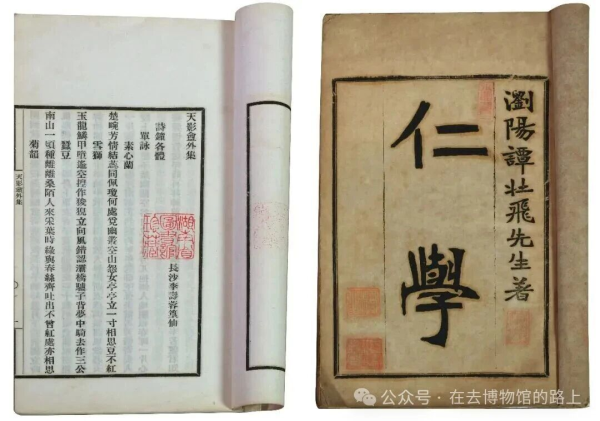 天影盦外集
詩鐘各體
單詠
素心蘭
長沙李壽蓉篁仙
楚畹芳情結蕊同佩瓊何處覓幽叢空山怨女亭亭立一寸相思豆不紅
雪獅
玉龍鱗甲墮遙空捏作狻猊立向風錯認灞橋驢子背夢中騎去作三公
蠶豆
南山一頃種離離桑陌人來采葉時綠與春絲齊吐出不曾紅處亦相思
菊韻
天影盦外集
一
湖南省
圖書館
珍藏
瀏陽譚壯飛先生著
仁學
公众号·在去博物馆的路上